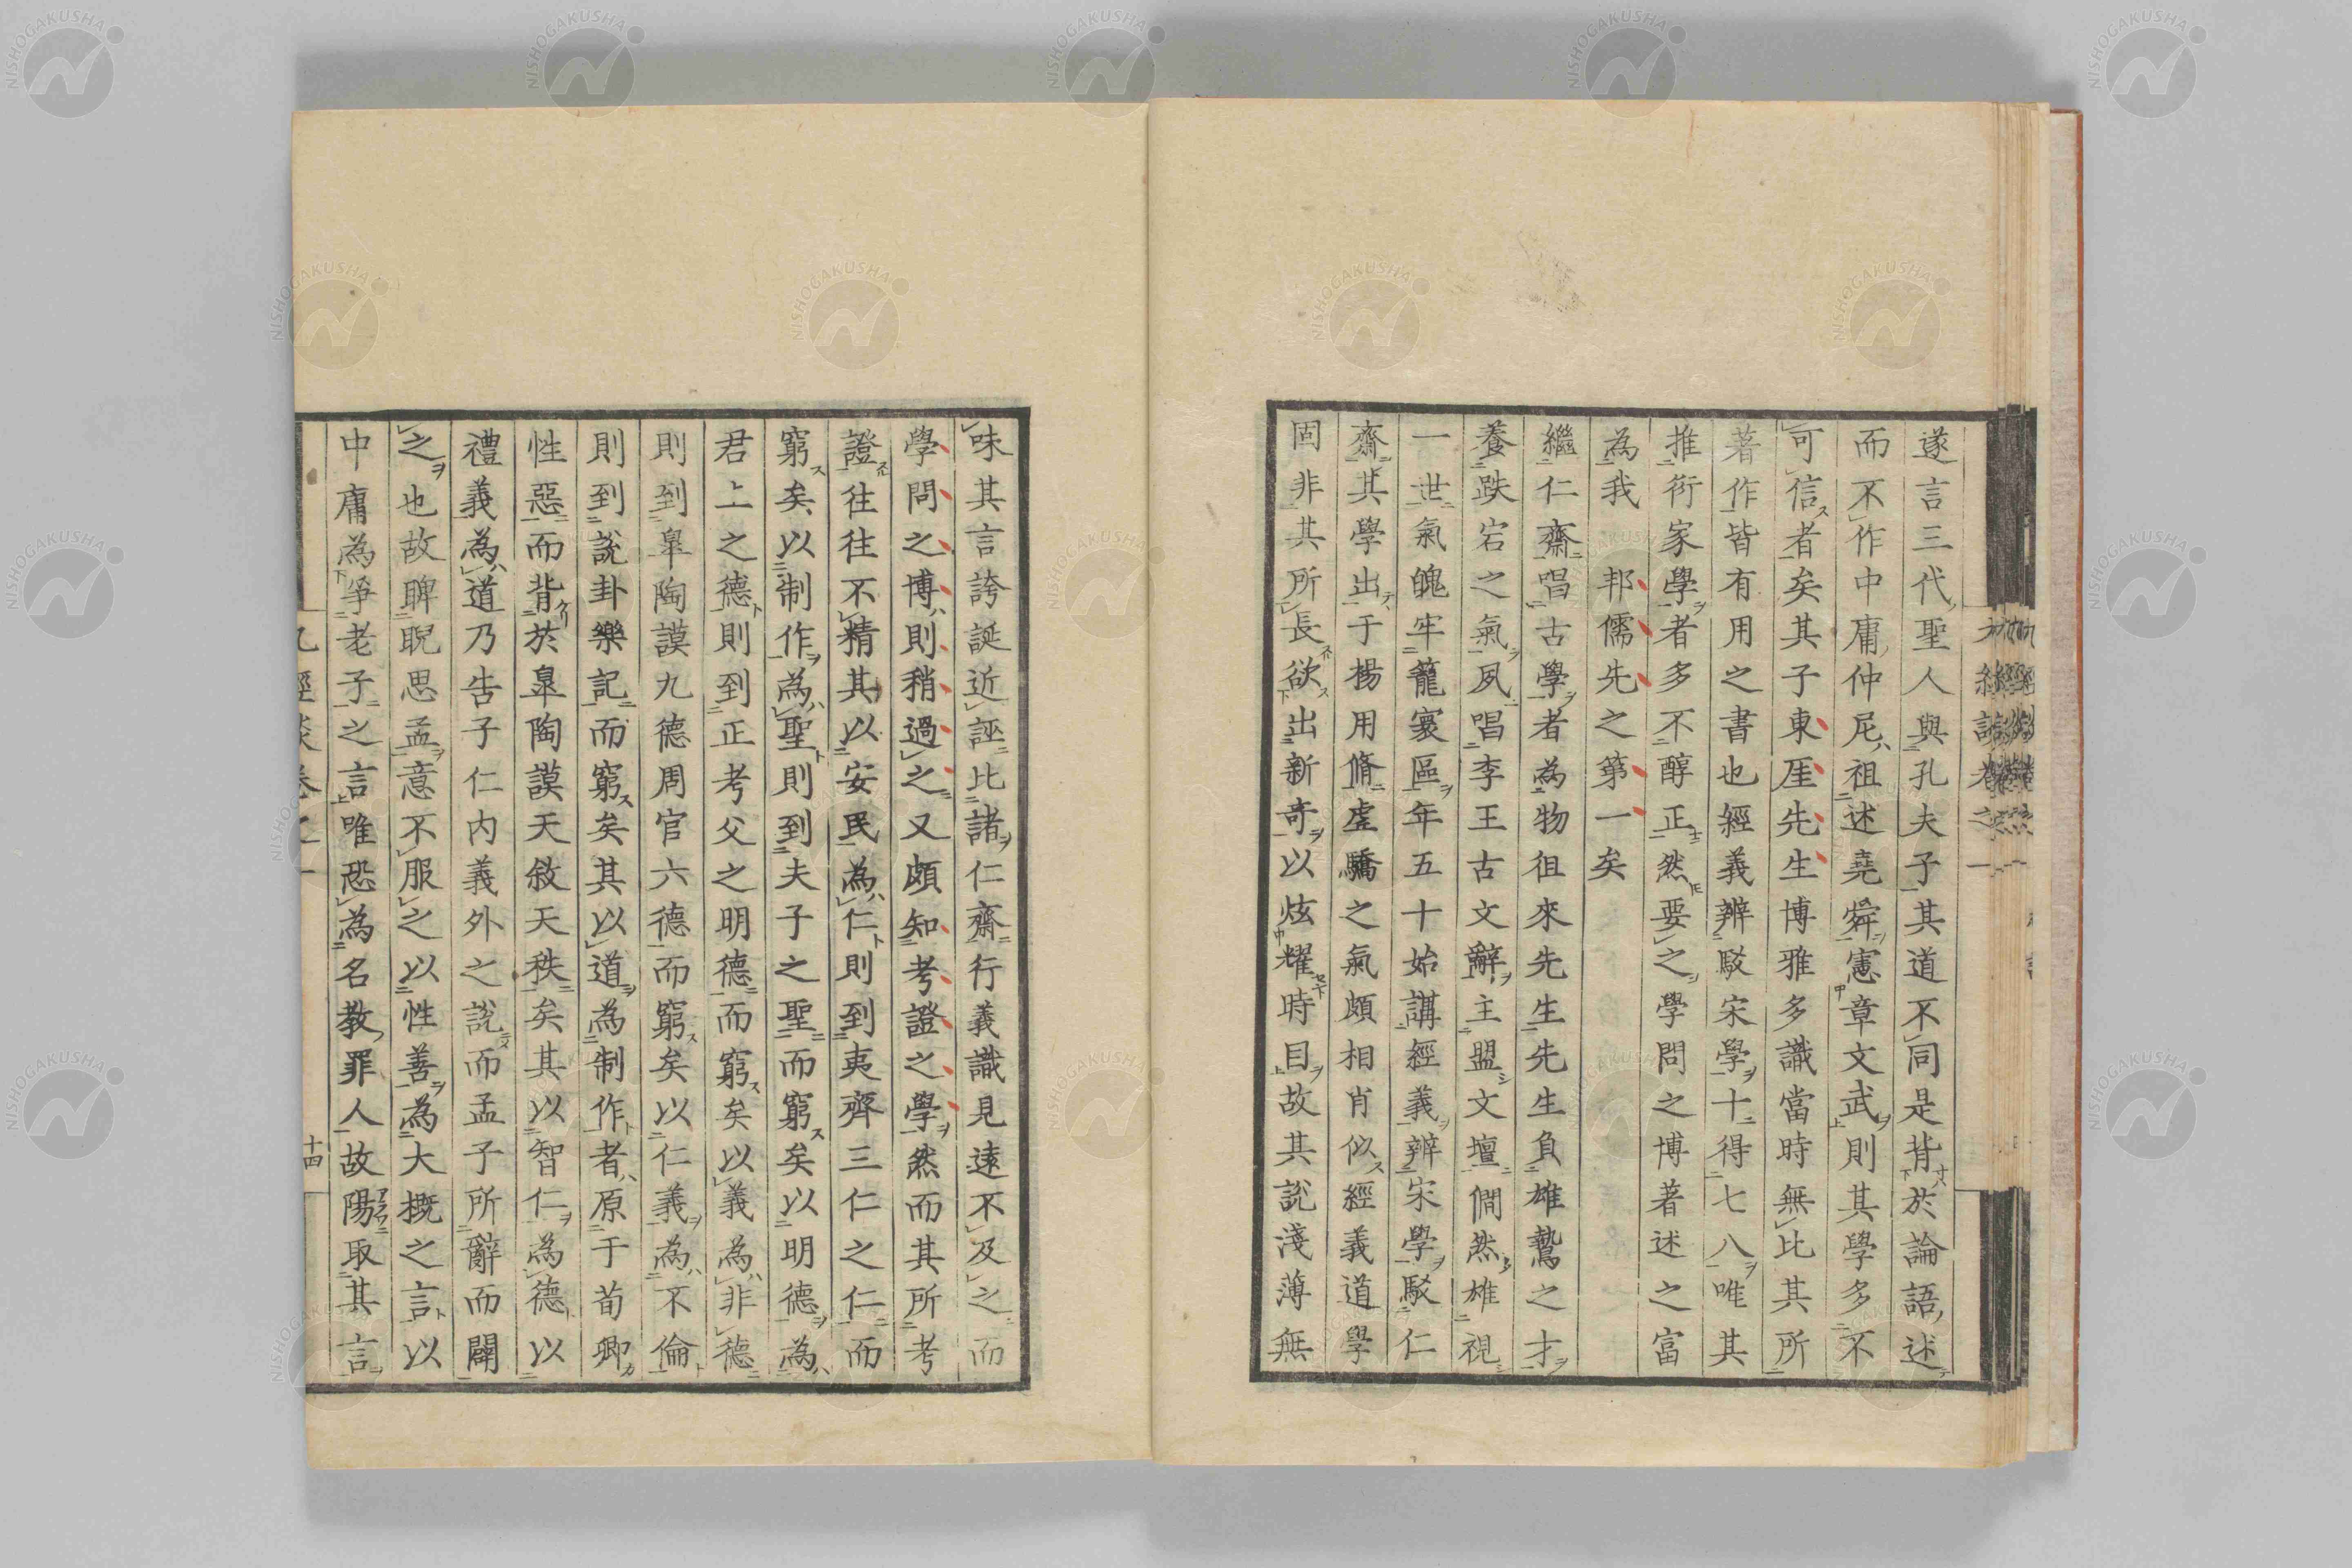 遂言三代聖人與孔夫子其道不同是背於論語述
而不作中庸仲尼祖述堯舜憲章文武則其學多不
可信者矣其子東厓先生博雅多識當時無比其所
著作皆有用之書也經義辨駁宋學十得七八唯其
推衍家學者多不醇正然要之學問之博著述之富
為我 邦儒先之第一矣
繼仁齋唱古學者為物徂來先生先生負雄鷙之才
養跌宕之氣夙唱李王古文辭主盟文壇僩然雄視
一世氣魄牢籠寰區年五十始講經義辨宋學駁仁
齋其學出于楊用脩虛驕之氣頗相肖似經義道學
固非其所長欲出新奇以炫耀時目故其說淺薄無
味其言誇誕近誣比諸仁齋行義識見遠不及之而
學問之博則稍過之又頗知考證之學然而其所考
證往往不精其以安民為仁則到夷齊三仁之仁而
窮矣以制作為聖則到夫子之聖而窮矣以明德為
君上之德則到正考父之明德而窮矣以義為非德
則到皐陶謨九德周官六德而窮矣以仁義為不倫
則到說卦樂記而窮矣其以道為制作者原于荀卿
性惡而背於皐陶謨天敘天秩矣其以智仁為德以
禮義為道乃告子仁內義外之說而孟子所辭而闢
之也故睥睨思孟意不服之以性善為大概之言以
中庸為爭老子之言唯恐為名教罪人故陽取其言
九經談卷之一
十四
NISHOGAKUSHA